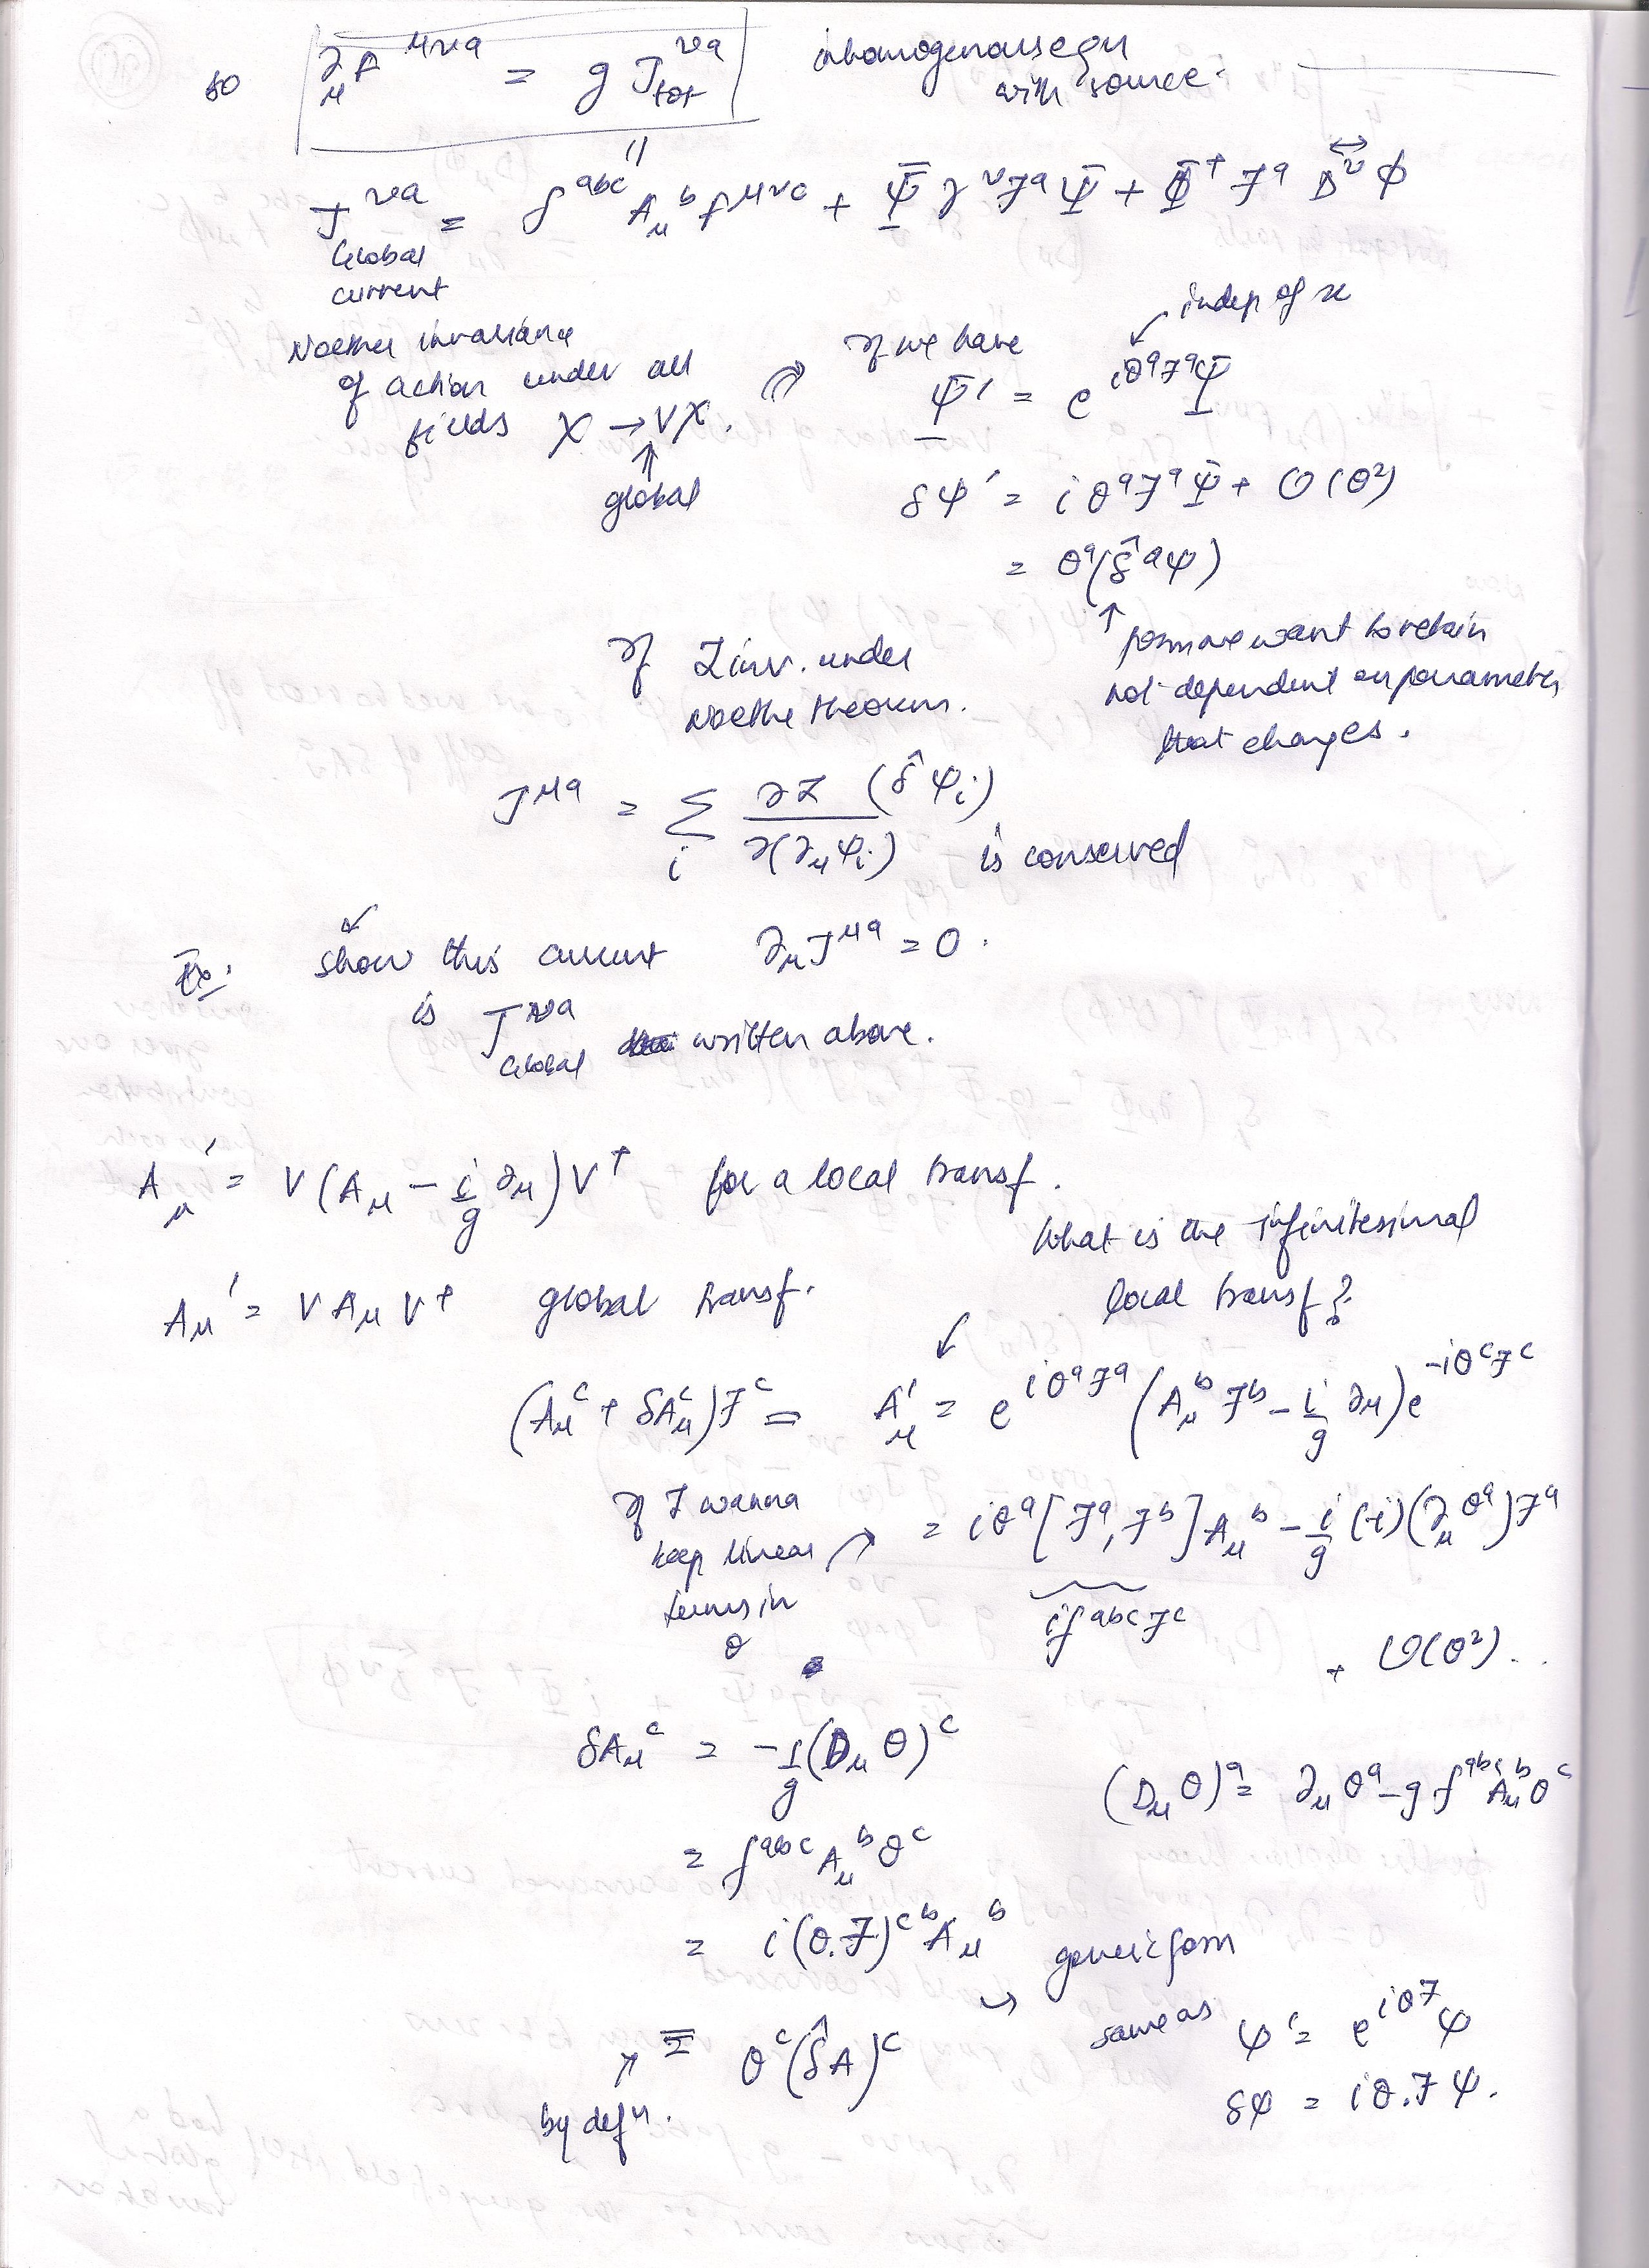 so ∂_μ F^{μνa} = g J_{tot}^{νa} inhomogenous eqn
with source.
J^{νa}_{Global current} = f^{abc} A_μ^b F^{μνc} + Ψ̄ γ^ν T^a Ψ + Φ^† T^a D^ν Φ
Noether invariance
of action under all
fields X → VX.
↑
global
If we have
indep of x
Ψ' = e^{iθ^a T^a} Ψ
δψ' = i θ^a T^a Ψ + O(θ²)
= θ^a (δ̂^a ψ)
↑ form we want to retain
not dependent on parameter
that changes.
If L inv. under
Noethe theorem.
J^{μa} = Σ_i ∂L/∂(∂_μ φ_i) (δ̂ φ_i) is conserved
Ex: show this current ∂_μ J^{μa} = 0.
is J^{νa}_{Global} written above.
A_μ' = V (A_μ - i/g ∂_μ) V^† for a local transf.
What is the infinitesimal
local transf?
A_μ' = V A_μ V^† global transf.
(A_μ^c + δA_μ^c) T^c = A_μ' = e^{iθ^a T^a} (A_μ^b T^b - i/g ∂_μ) e^{-iθ^c T^c}
If I wanna
keep linear
terms in
θ
= iθ^a [T^a, T^b] A_μ^b - i/g (-i)(∂_μ θ^a) T^a
i f^{abc} T^c
+ O(θ²)..
δA_μ^c = -1/g (D_μ θ)^c
(D_μ θ)^a = ∂_μ θ^a - g f^{abc} A_μ^b θ^c
= f^{abc} A_μ^b θ^c
= i(θ.T)^{cb} A_μ^b
→ generic form
same as ψ' = e^{iθT} ψ
≡ θ^c (δ̂A)^c
↗ by defn.
δψ = iθ.Tψ.